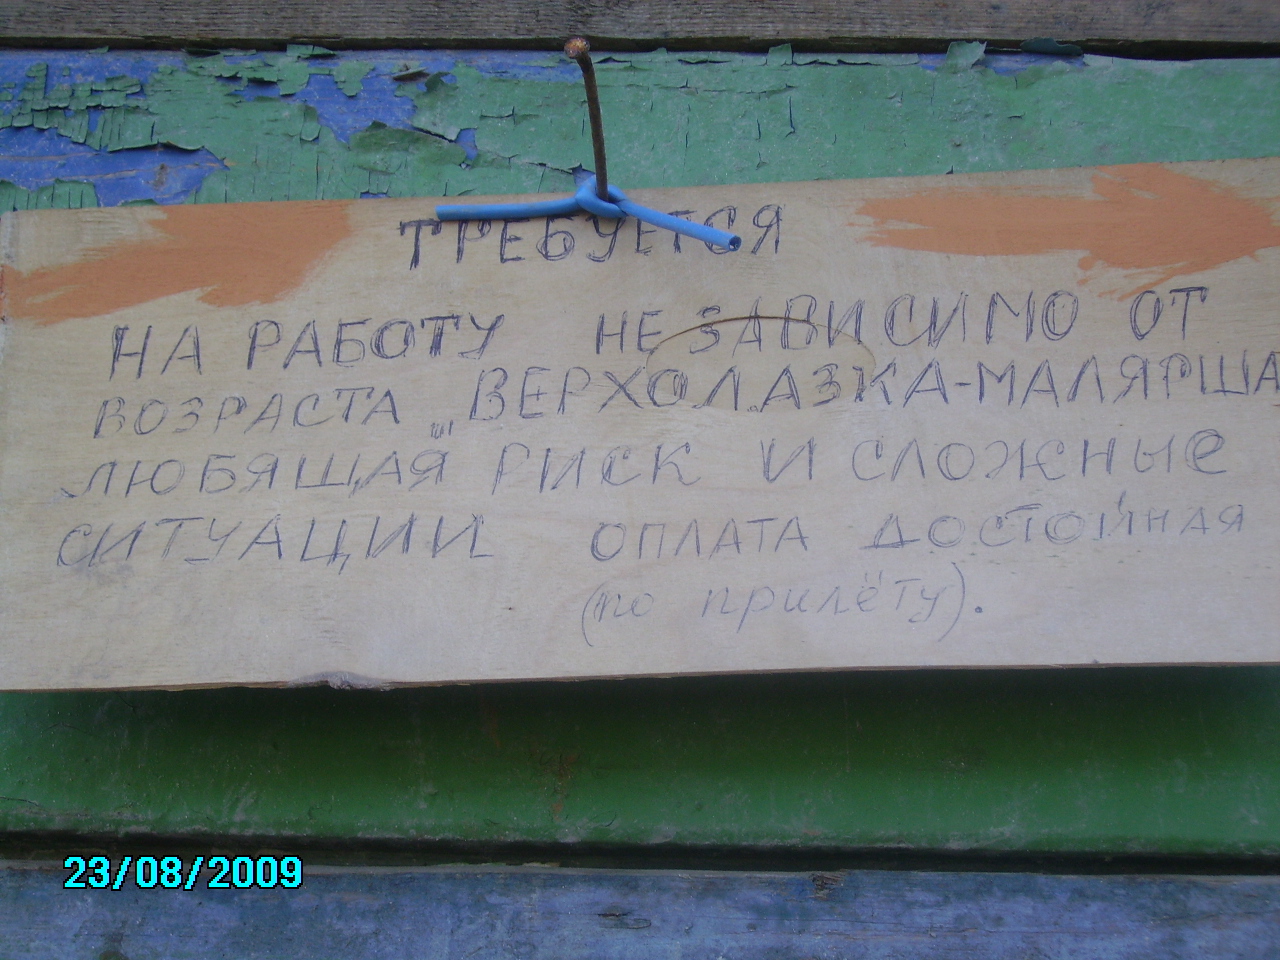 ТРЕБУЕТСЯ
НА РАБОТУ НЕ ЗАВИСИМО ОТ
ВОЗРАСТА ВЕРХОЛАЗКА-МАЛЯРША
ЛЮБЯЩАЯ РИСК И СЛОЖНЫЕ
СИТУАЦИИ ОПЛАТА ДОСТОЙНАЯ
(по прилёту).
23/08/2009